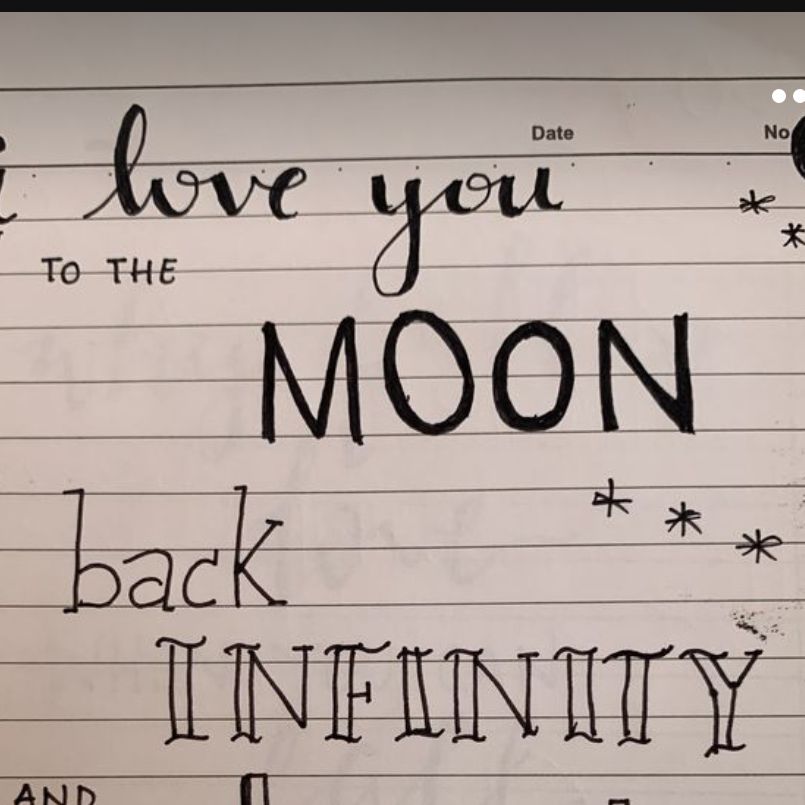 Date No
i love you
TO THE
MOON
back
INFINITY
AND